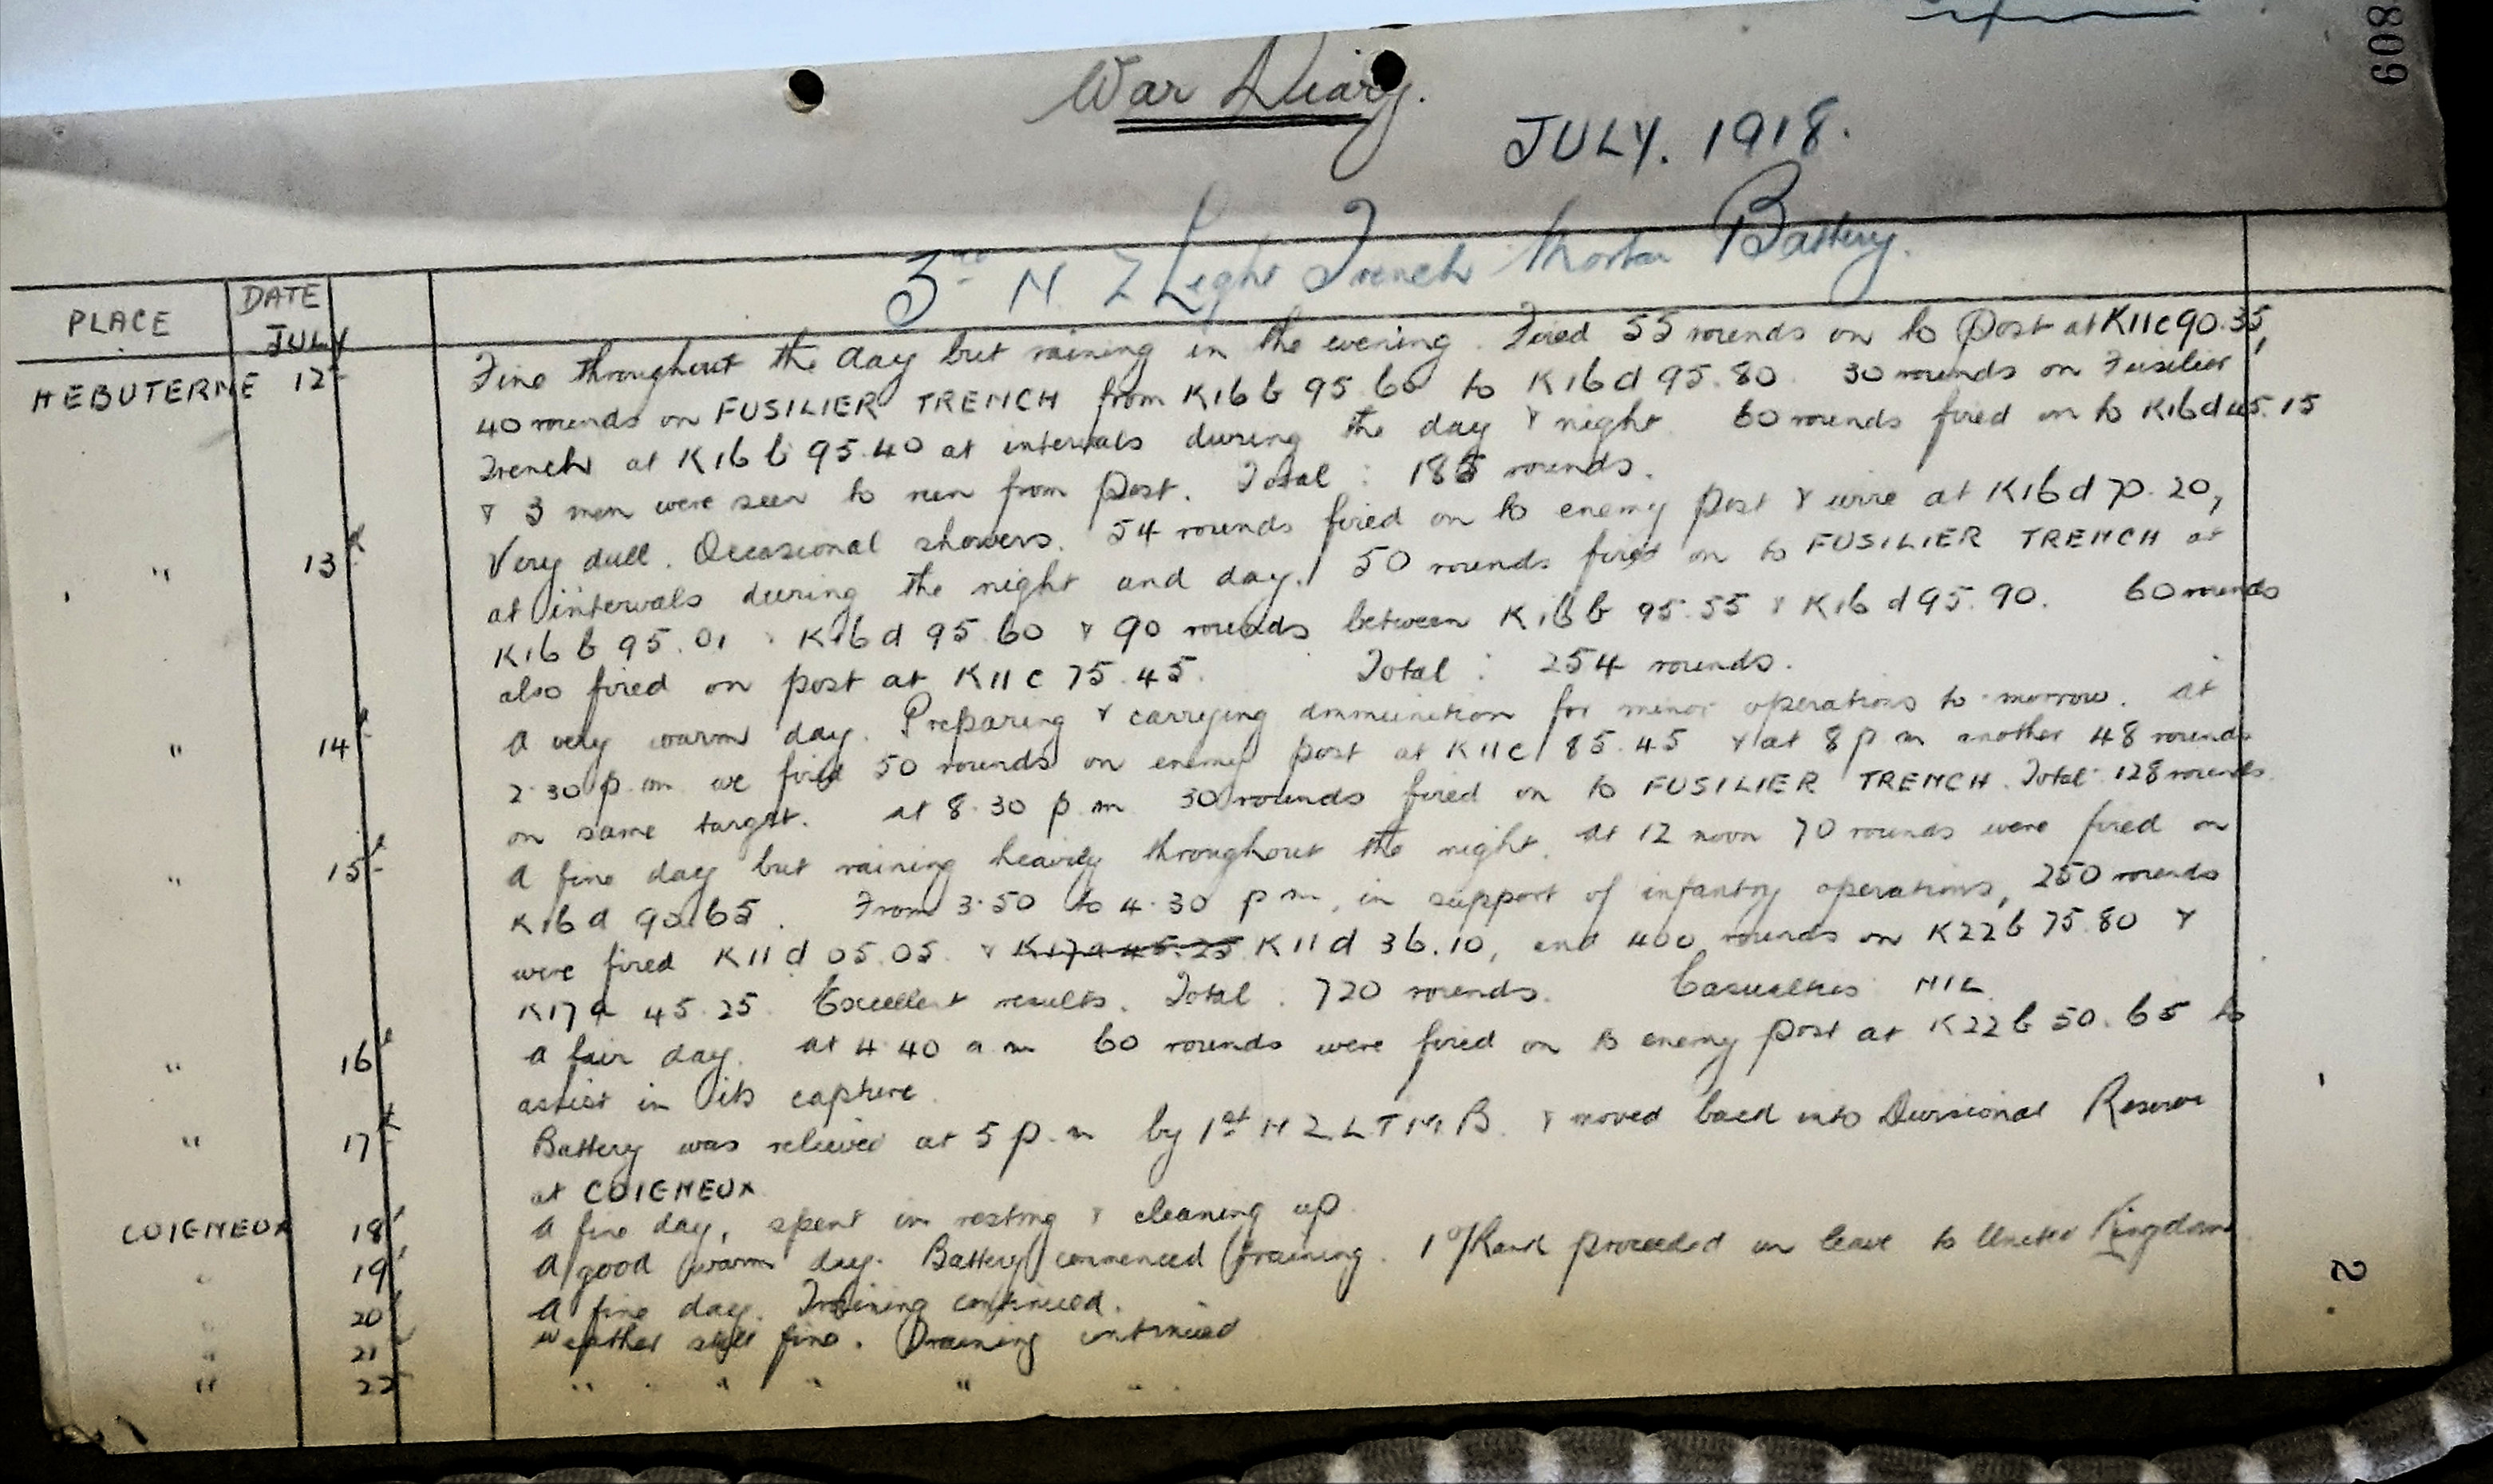 809
War Diary.
JULY. 1918.
3rd N Z Light Trench Mortar Battery.
PLACE DATE
JULY
HEBUTERNE 12th Fine throughout the day but raining in the evening. Fired 55 rounds on to Post at K11c90.35,
40 rounds on FUSILIER TRENCH from K16b 95.60 to K16d 95.80. 30 rounds on Fusilier
Trench at K16b 95.40 at intervals during the day & night. 60 rounds fired on to K16d45.15
& 3 men were seen to run from Post. Total : 185 rounds.
" 13th Very dull. Occasional showers. 54 rounds fired on to enemy post & wire at K16d 70.20,
at intervals during the night and day. 50 rounds fired on to FUSILIER TRENCH at
K16b 95.01 & K16d 95.60 & 90 rounds between K16b 95.55 & K16d 95.90. 60 rounds
also fired on post at K11c 75.45. Total : 254 rounds.
" 14th A very warm day. Preparing & carrying ammunition for minor operations to-morrow. At
2.30 p.m. we fired 50 rounds on enemy post at K11c 85.45 & at 8 p.m another 48 rounds
on same target. At 8.30 p.m 30 rounds fired on to FUSILIER TRENCH. Total 128 rounds.
" 15th A fine day but raining heavily throughout the night. At 12 noon 70 rounds were fired on
K16d 90.65. From 3.50 to 4.30 p m, in support of infantry operations, 250 rounds
were fired K11d 05.05. & K17a 45.25 K11d 36.10, and 400 rounds on K22b 75.80 &
K17a 45.25. Excellent results. Total : 720 rounds. Casualties NIL.
" 16th A fair day. At 4.40 a.m 60 rounds were fired on to enemy post at K22b 50.65 to
assist in its capture.
" 17th Battery was relieved at 5 p.m by 1st N Z L T M B. & moved back into Divisional Reserve
at COIGNEUX
COIGNEUX 18th A fine day, spent in resting & cleaning up.
" 19th A good warm day. Battery commenced training. 1 O/Rank proceeded on leave to United Kingdom.
" 20th A fine day. Training continued.
" 21st Weather still fine. Training continued
" 22 " " " " " "
2